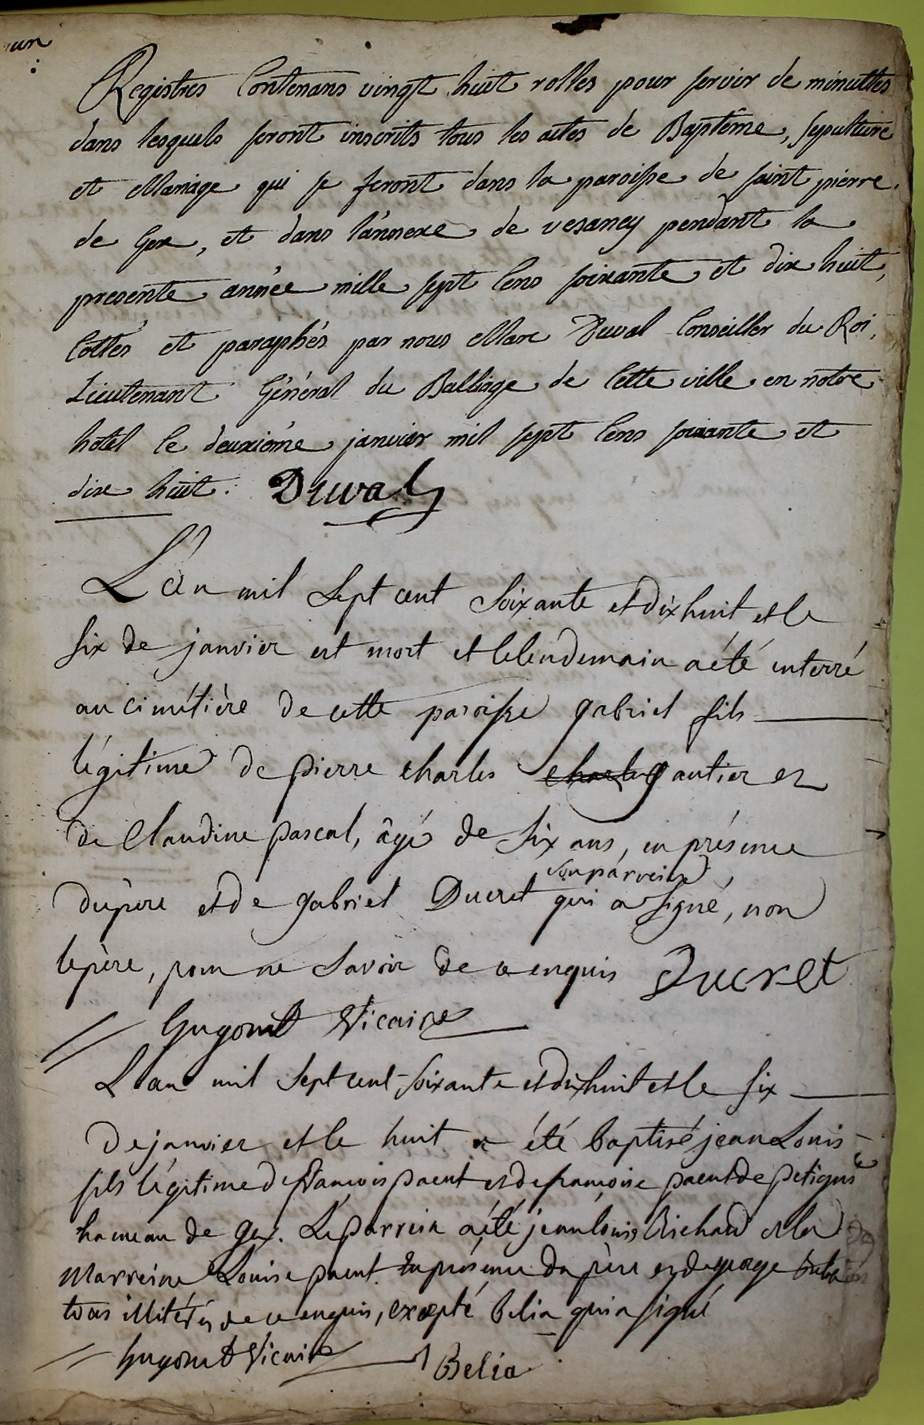 Registres Contenans vingt huit rolles pour servir de minuttes
dans lesquels seront inscrits tous les actes de Baptême, sepulture
et Mariage qui se feront dans la paroisse de saint pierre
de Gex, et dans l'annexe de vesancy pendant la
presente année mille sept Cens soixante et dix huit,
Cottés et paraphés par nous Marc Duval Conseiller du Roi,
Lieutenant Général du Balliage de Cette ville en notre
hotel le deuxième janvier mil sept Cens soixante et
dix huit. Duval
L'an mil Sept cent Soixante et dix huit et le
six de janvier est mort et le lendemain a été enterré
au cimétière de cette paroisse gabriel fils
légitime de pierre charles gautier et
de Claudine pascal, âgé de Six ans, en présence
du père et de gabriel Ducret son párrein qui a signé, non
le père, pour ne Savoir de ce enquis Ducret
Gugonet Vicaire
L'an mil Sept cent Soixante et dix huit et le six
de janvier et le huit a été baptisé jean Louis
fils légitime de françois paent et de françoise paent de petigni
hameau de gex. Le parrein a été jean louis Bichard et la
Marreine Louise paent en présence du père et de george
tous illitérés de ce enquis, excepté Belia qui a signé
Gugonet Vicaire Belia